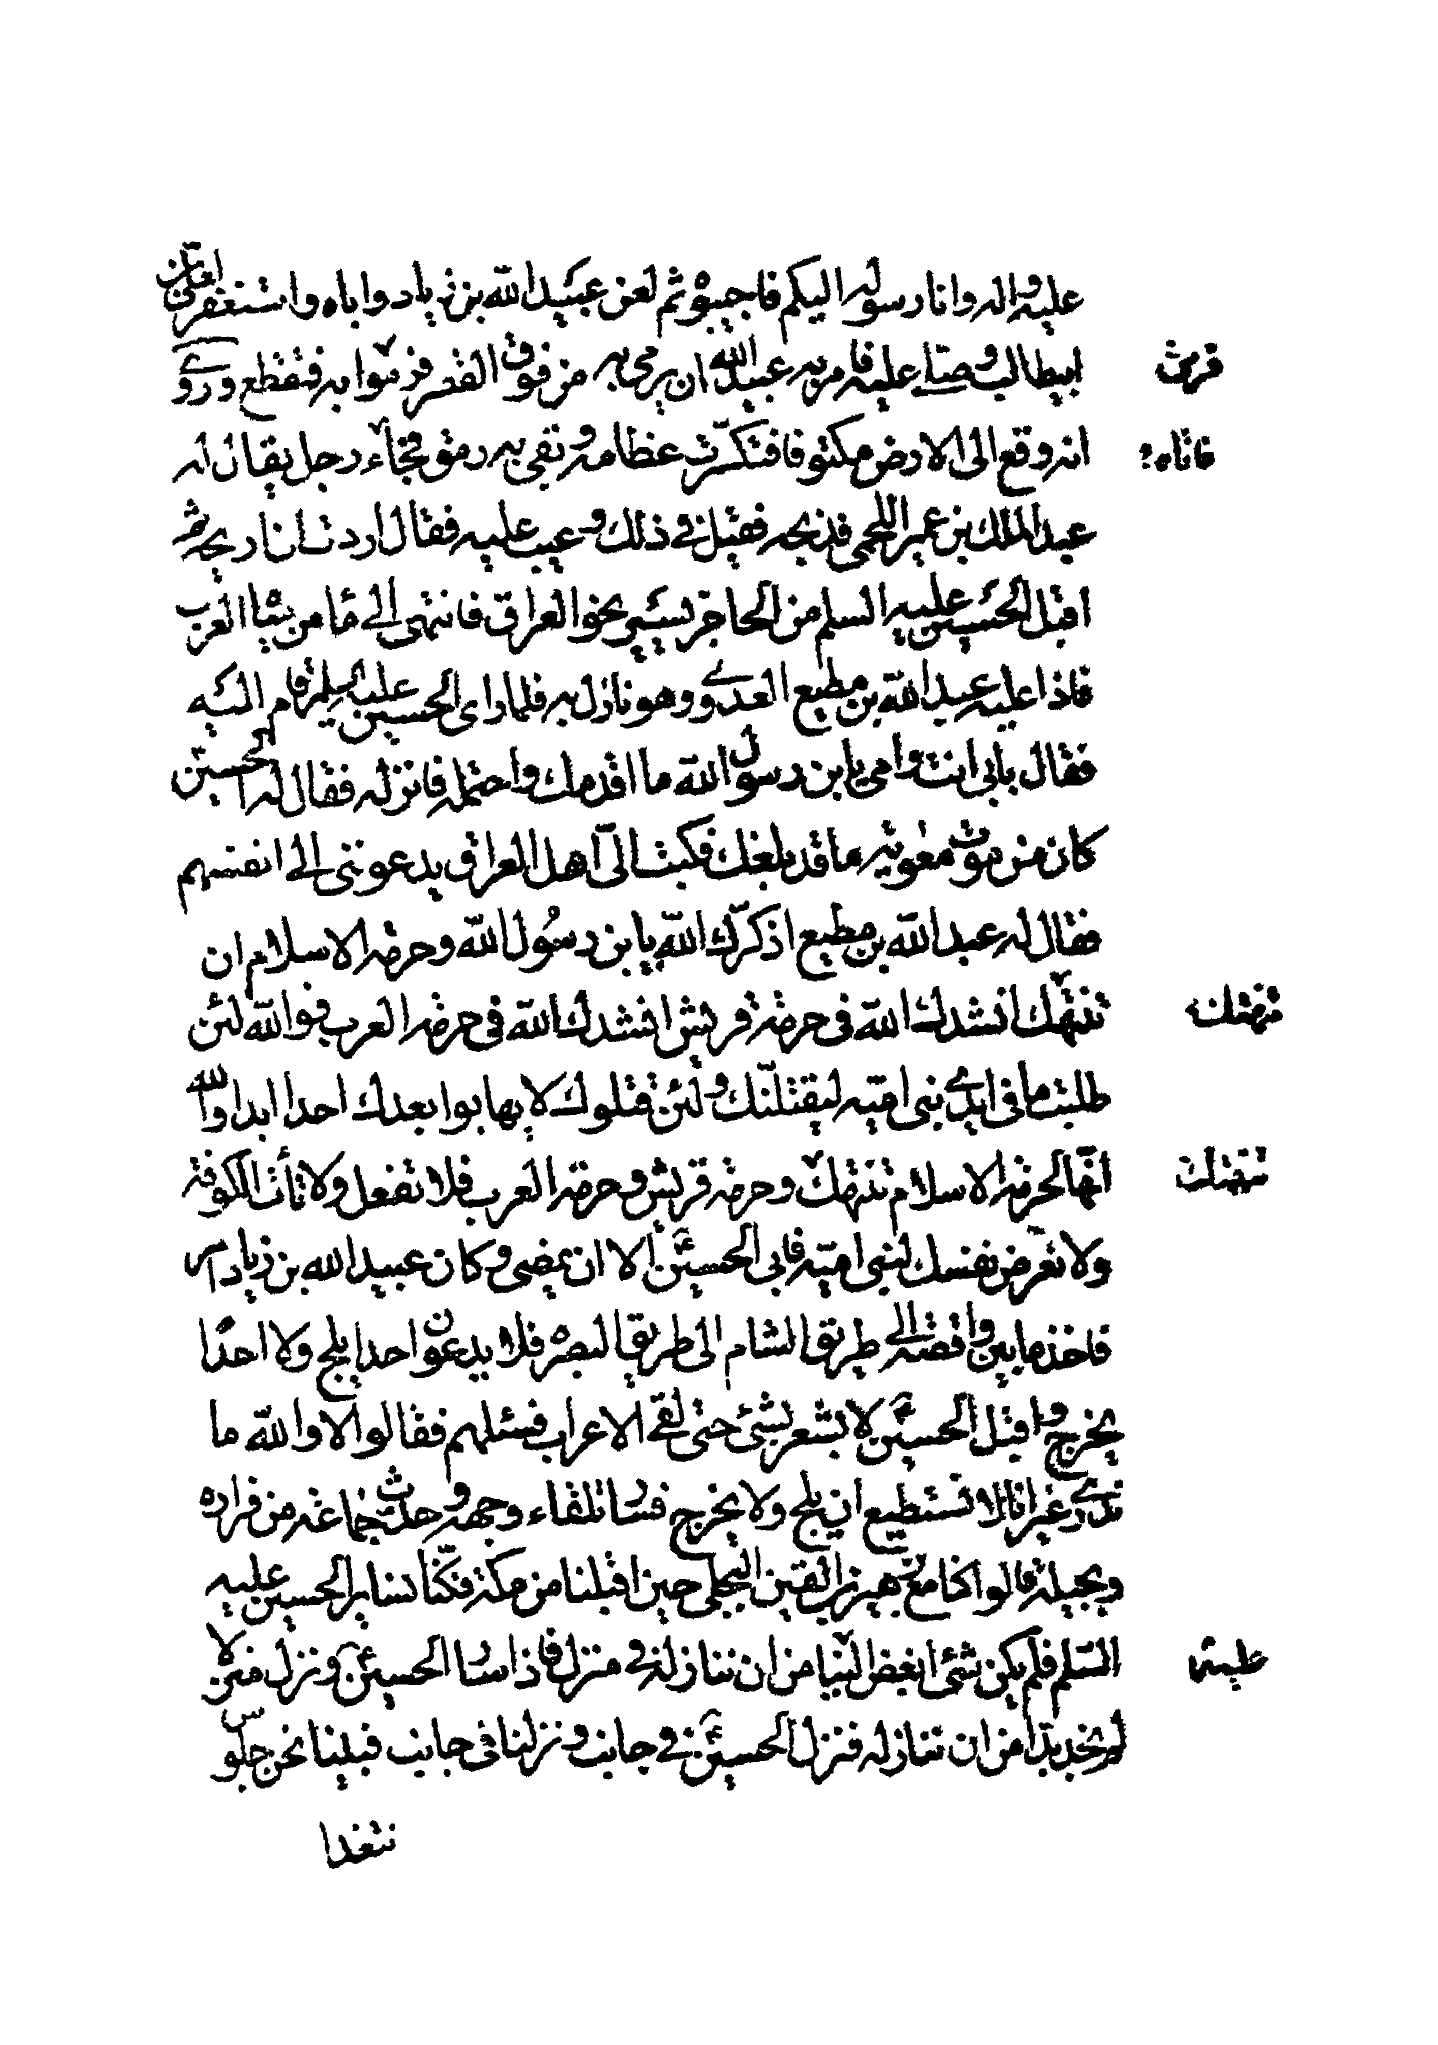 عليه واله وانا رسوله اليكم فاجيبوه ثم لعن عبيد الله بن زياد واباه واستغفر لعلي بن
ابيطالب وصلى عليه فامر به عبيد الله ان يرمى به من فوق القصر فرموا به فتقطع وروى
قرمى
انه وقع الى الارض مكتوفا فتكسرت عظامه وبقى به رمق فجاء رجل يقال له
فاتاه
عبد الملك بن عمير اللخمى فذبحه فقيل له فى ذلك وعيب عليه فقال اردت ان اريحه ثم
اقبل الحسين عليه السلم من الحاجر يسير نحو العراق فانتهى الى ماء من مياه العرب
فاذا عليه عبد الله بن مطيع العدوى وهو نازل به فلما راى الحسين عليه السلم قام اليه
فقال بابى انت وامى يا بن رسول الله ما اقدمك واحتمله فانزله فقال له الحسين
كان من موت معوية ما قد بلغك فكتب الى اهل العراق يدعوننى الى انفسهم
فقال له عبد الله بن مطيع اذكرك الله يا بن رسول الله وحرمة الاسلام ان
تنتهك انشدك الله فى حرمة قريش انشدك الله فى حرمة العرب فوالله لئن
تنهتك
طلبت ما فى ايدى بنى امية ليقتلنك ولئن قتلوك لا يهابوا بعدك احدا ابدا والله
انها لحرمة الاسلام تنتهك وحرمة قريش وحرمة العرب فلا تفعل ولا تأت الكوفة
تنهتك
ولا تعرض نفسك لبنى امية فابى الحسين الا ان يمضى وكان عبيد الله بن زياد امر
فاخذ ما بين واقصة الى طريق الشام الى طريق البصرة فلا يدعون احدا يلج ولا احدا
يخرج واقبل الحسين لا يشعر بشئ حتى لقى الاعراب فسئلهم فقالوا لا والله ما
ندرى غير انا لا نستطيع ان يلج ولا يخرج فسار تلقاء وجهه وحدث جماعة من فزاره
وبجيلة قالوا كنا مع زهير بن القين البجلى حين اقبلنا من مكة فكنا نساير الحسين عليه
السلم فلم يكن شئ ابغض الينا من ان ننازله فى منزل فاذا سار الحسين ونزل منزلا
علينه
لم نجد بدا من ان ننازله فنزل الحسين فى جانب ونزلنا فى جانب فبينا نحن جلوس
نتغدا